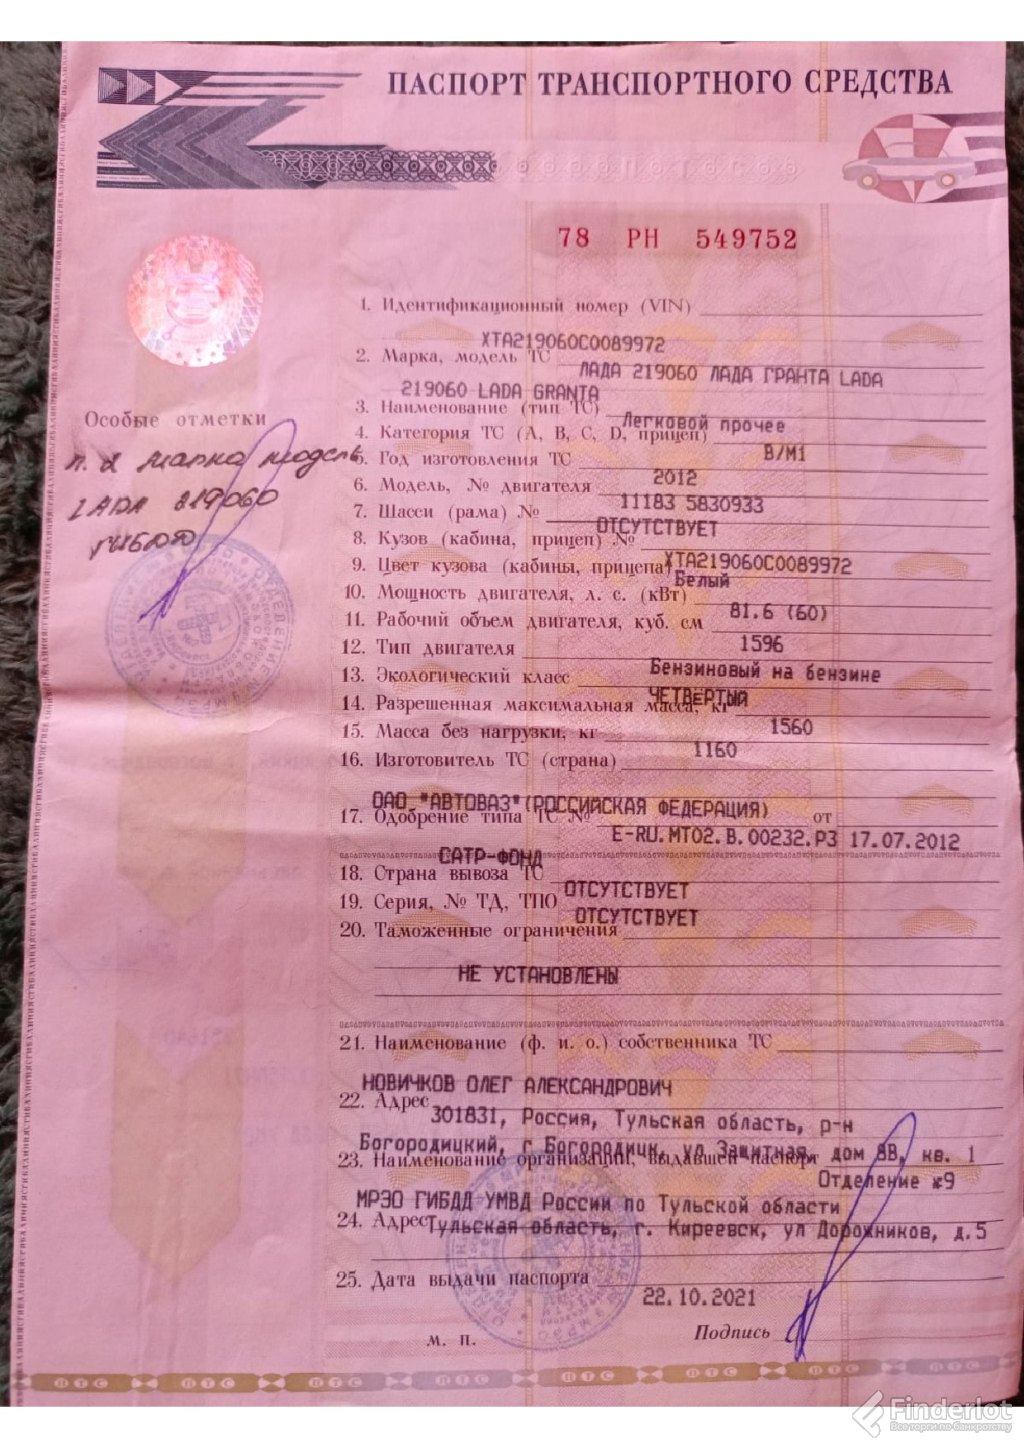 ПАСПОРТ ТРАНСПОРТНОГО СРЕДСТВА
78 РН 549752
1. Идентификационный номер (VIN)
XTA219060C0089972
2. Марка, модель ТС
ЛАДА 219060 ЛАДА ГРАНТА LADA
219060 LADA GRANTA
3. Наименование (тип ТС)
Легковой прочее
4. Категория ТС (А, В, С, D, прицеп)
B/M1
5. Год изготовления ТС
2012
6. Модель, № двигателя
11183 5830933
7. Шасси (рама) №
ОТСУТСТВУЕТ
8. Кузов (кабина, прицеп) №
XTA219060C0089972
9. Цвет кузова (кабины, прицепа)
Белый
10. Мощность двигателя, л. с. (кВт)
81.6 (60)
11. Рабочий объем двигателя, куб. см
1596
12. Тип двигателя
Бензиновый на бензине
13. Экологический класс
ЧЕТВЕРТЫЙ
14. Разрешенная максимальная масса, кг
1560
15. Масса без нагрузки, кг
1160
16. Изготовитель ТС (страна)
ОАО "АВТОВАЗ"(РОССИЙСКАЯ ФЕДЕРАЦИЯ)
17. Одобрение типа ТС № от
E-RU.MT02.B.00232.P3 17.07.2012
САТР-ФОНД
18. Страна вывоза ТС
ОТСУТСТВУЕТ
19. Серия, № ТД, ТПО
ОТСУТСТВУЕТ
20. Таможенные ограничения
НЕ УСТАНОВЛЕНЫ
21. Наименование (ф. и. о.) собственника ТС
НОВИЧКОВ ОЛЕГ АЛЕКСАНДРОВИЧ
22. Адрес
301831, Россия, Тульская область, р-н
Богородицкий, г Богородицк, ул Защитная, дом 8В, кв. 1
23. Наименование организации, выдавшей паспорт
Отделение №9
МРЭО ГИБДД УМВД России по Тульской области
24. Адрес
Тульская область, г. Киреевск, ул Дорожников, д.5
25. Дата выдачи паспорта
22.10.2021
м. п.
Подпись
Особые отметки
п. 2 марка модель
LADA 219060
ПТС ПТС ПТС ПТС ПТС ПТС ПТС ПТС
Finderlot
Все торги по банкротству